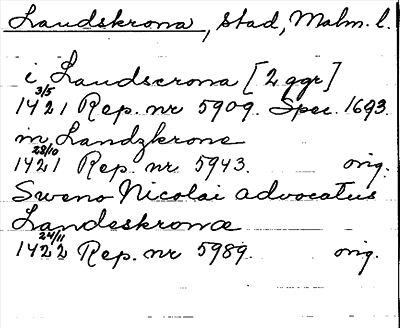 Landskrona, stad, Malm. l.
i Landscrona [2 ggr]
3/5
1421 Rep. nr 5909. Spec. 1693.
in Landzkrone
28/10
1421 Rep. nr 5943. orig.
Sweno Nicolai advocatus
Landeskronæ
24/11
1422 Rep. nr 5989. orig.